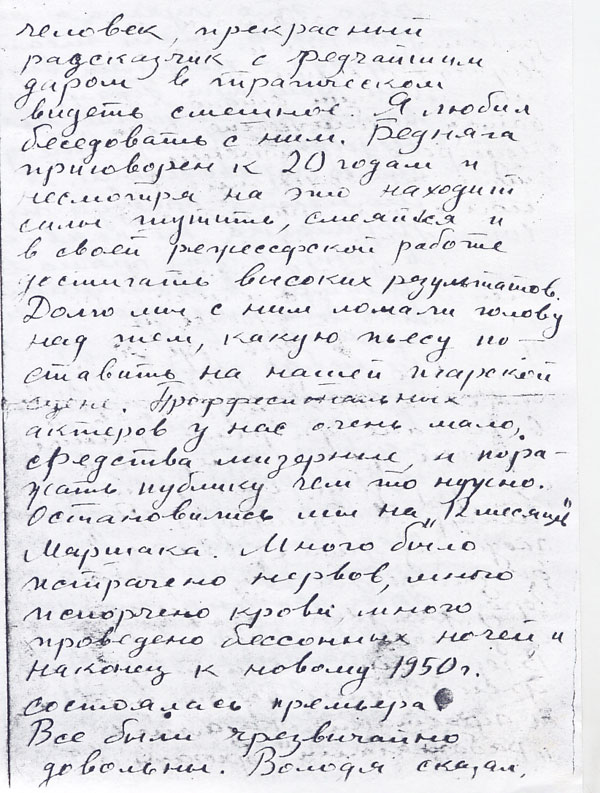 человек, прекрасный
рассказчик с редчайшим
даром в трагическом
видеть смешное. Я любил
беседовать с ним. Бедняга
приговорен к 20 годам и
несмотря на это находит
силы шутить, смеяться и
в своей режессерской работе
достигать высоких результатов.
Долго мы с ним ломали голову
над тем, какую пьесу по-
ставить на нашей
сцене. Профессиональных
актеров у нас очень мало,
средства мизерные, и пора-
жать публику чем то нужно.
Остановились мы на "12 месяцев"
Маршака. Много было
истрачено нервов, много
испорчено крови, много
проведено бессонных ночей, и
наконец к новому 1950 г.
состоялась премьера.
Все были чрезвычайно
довольны. Володя сказал,